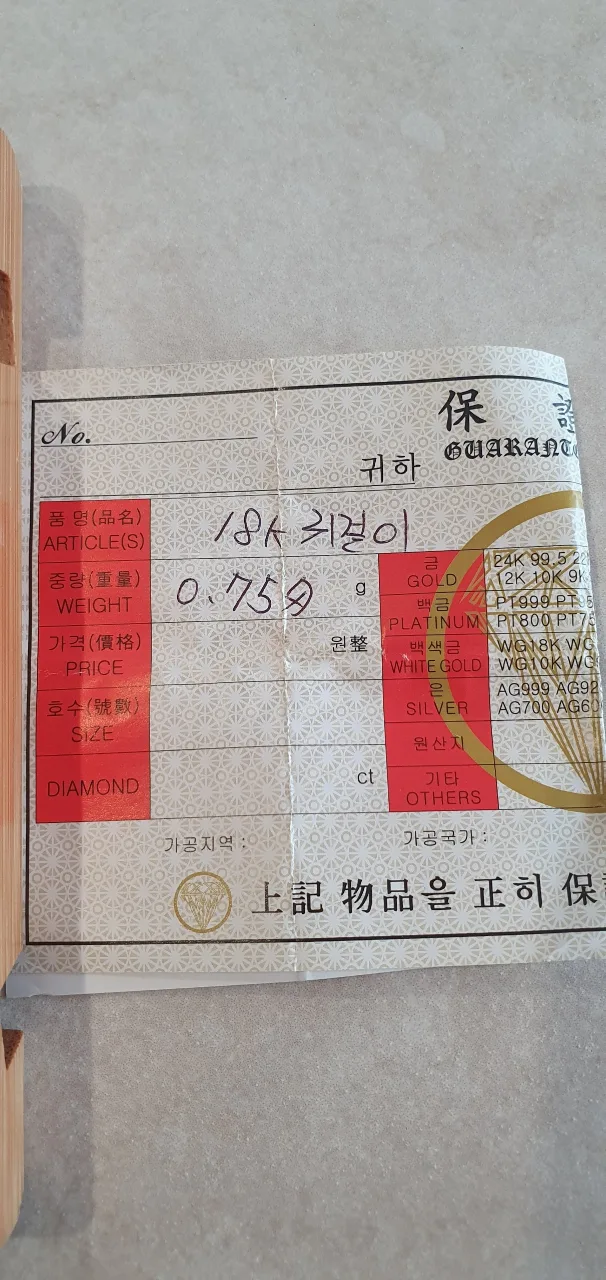 保 證
GUARANT
No.
귀하
품 명(品名)
ARTICLE(S)
18K 귀걸이
중량(重量)
WEIGHT
0.75 g
가격(價格)
PRICE
원整
호수(號數)
SIZE
DIAMOND
ct
금
GOLD
24K 99.5 22
12K 10K 9K
백금
PLATINUM
PT999 PT95
PT800 PT75
백색금
WHITE GOLD
WG18K WG
WG10K WG
은
SILVER
AG999 AG92
AG700 AG60
원산지
기타
OTHERS
가공지역 :
가공국가 :
上記 物品을 正히 保